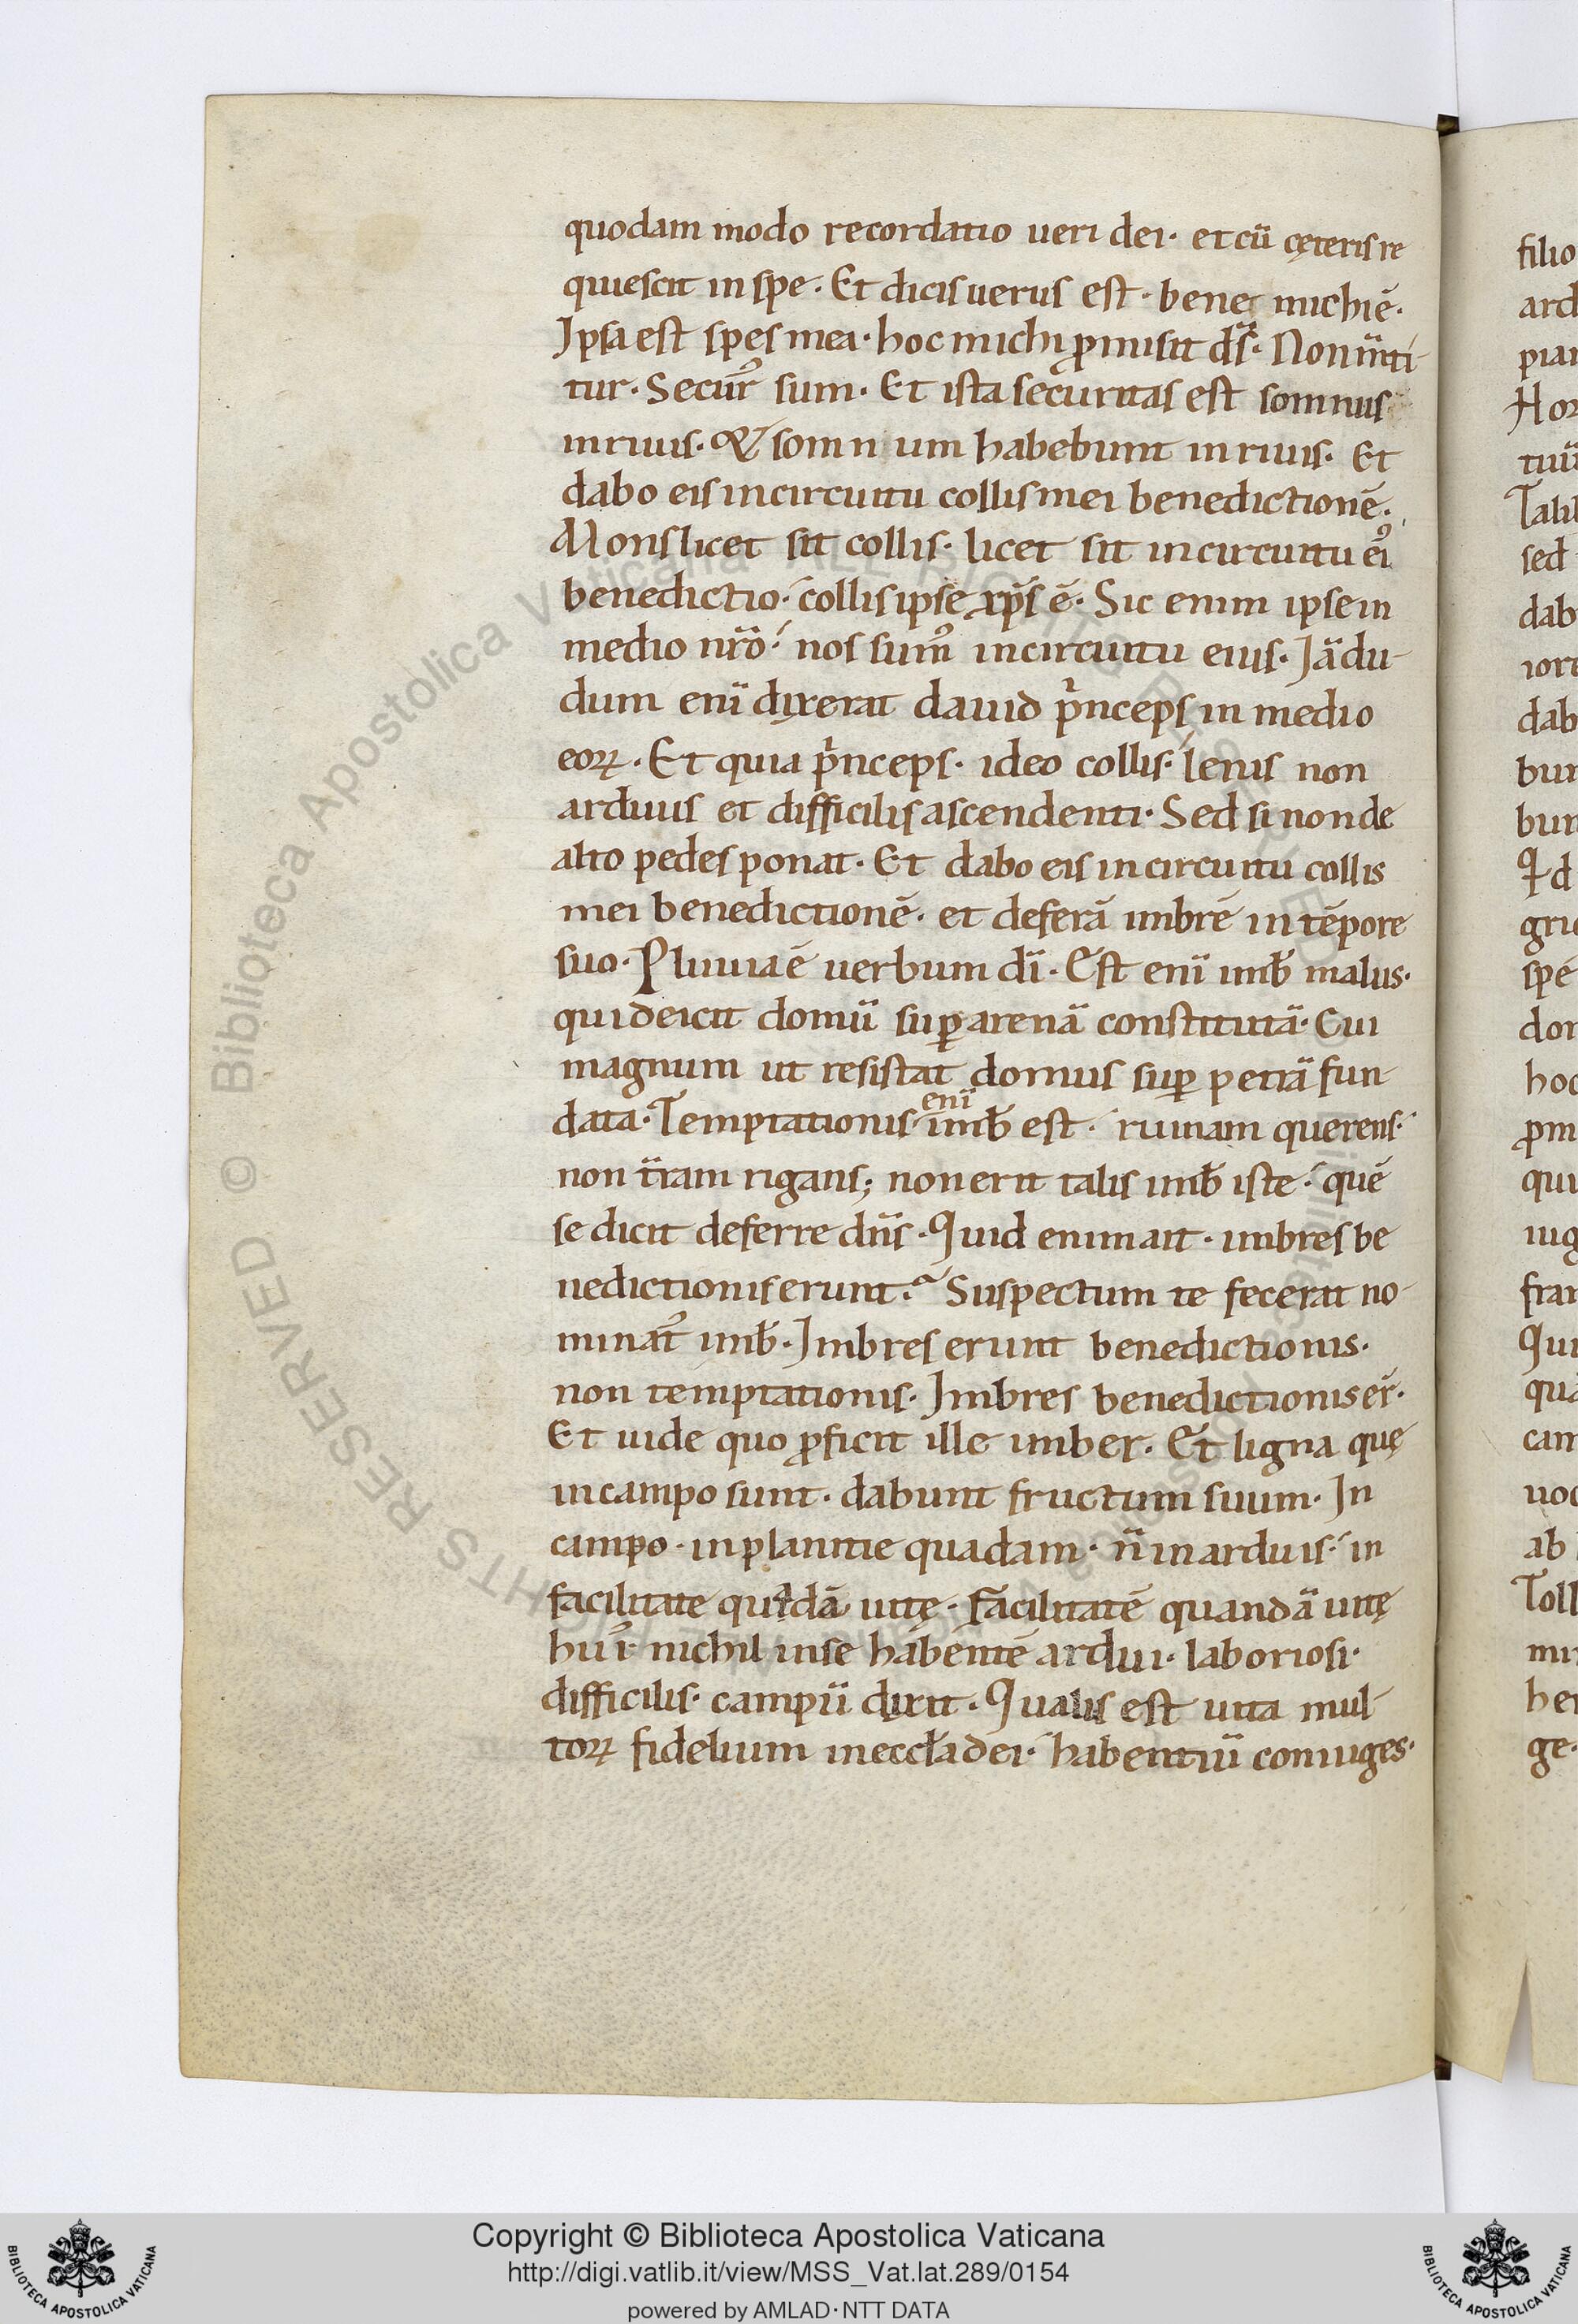 quodam modo recordatio ueri dei· et cū cęteris re
quiescit in spe· Et dicis uerus est· bene michi ē·
Ipsa est spes mea· hoc michi ꝓmisit ds̄· Non m̄ti-
tur· Secur᾽ sum· Et ista securitas est somnus
in riuis· & somn um habebunt in riuis· Et
dabo eis in circuitu collis mei benedictionē·
Mons licet sit collis· licet sit in circuitu ei᾽
benedictio· collis ipse xp̄s ē· Sic enim ipse in
medio nr̄o· nos sum᾽ in circuitu eius· Iādu-
dum enī dixerat dauid p̍nceps in medio
eoꝝ· Et quia p̍nceps· ideo collis· lenis non
arduus et difficilis ascendenti· Sed si non de
alto pedes ponat· Et dabo eis in circuitu collis
mei benedictionē· et deferā imbrē in tēpore
suo· Pluuia ē uerbum dī· Est enī imb̄ malus·
qui deicit domū suꝑ arenā constitutā· Cui
magnum ut resistat domus suꝑ petrā fun
data· Temptationis enī imb̄ est· ruinam querens·
non t̄ram rigans; non erit talis imb̄ iste· quē
se dicit deferre dn̄s· Quid enim ait· imbres be
nedictionis erunt. Suspectum te fecerat no-
minat᾽ imb̄· Imbres erunt benedictionis·
non temptationis· Imbres benedictionis er̄·
Et uide quo ꝓficit ille imber· Et ligna quę
in campo sunt· dabunt fructum suum· In
campo· in planitie quadam· n̄ in arduis· in
facilitate quadā uitę· facilitatē quandā uitę
hui᾽· nichil in se habentē ardui· laboriosi·
difficilis· campū dixit· Qualis est uita mul-
toꝝ fidelium in eccł̄a dei· habentiū coniuges·
filio
ard
piar
Hor
tuū
Talib
sed
dab
iore
dab
bun
bun
gric
spē
dor
hoc
ꝓm
qui
iug
fran
Qui
qua
cam
uoc
ab
Toll
mi
ber
ge·
Copyright © Biblioteca Apostolica Vaticana
http://digi.vatlib.it/view/MSS_Vat.lat.289/0154
powered by AMLAD·NTT DATA
BIBLIOTECA APOSTOLICA VATICANA
BIBLIOTECA APOSTOLICA VATICANA